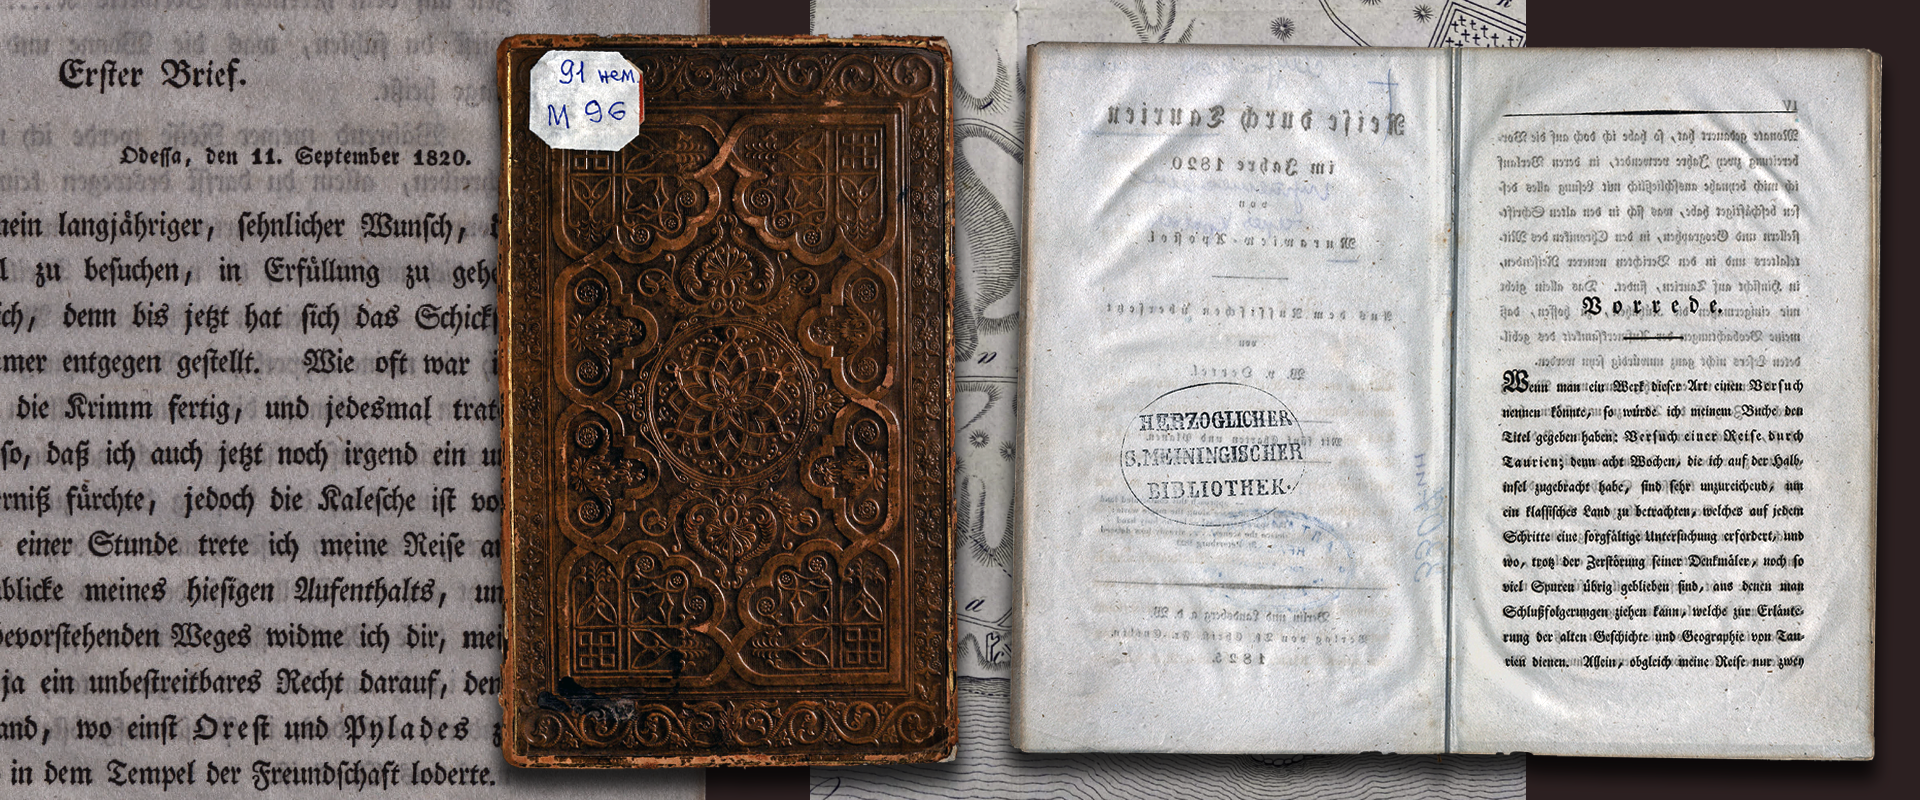 Erster Brief.
Odessa, den 11. September 1820.
mein langjähriger, sehnlicher Wunsch,
zu besuchen, in Erfüllung zu gehe
ich, denn bis jetzt hat sich das Schicks
mer entgegen gestellt. Wie oft war
die Krimm fertig, und jedesmal trat
so, daß ich auch jetzt noch irgend ein
erniß fürchte, jedoch die Kalesche ist vo
einer Stunde trete ich meine Reise an
blicke meines hiesigen Aufenthalts, un
bevorstehenden Weges widme ich dir, mei
ja ein unbestreitbares Recht darauf, den
and, wo einst Orest und Pylades
in dem Tempel der Freundschaft loderte.
91 нем
М 96
Reise durch Taurien
im Jahre 1820
von
Murawiew-Apostol.
Aus dem Russischen übersetzt
von
W. v. Oertel.
Mit fünf Charten und Planen.
HERZOGLICHER
S. MEININGISCHER
BIBLIOTHEK.
Berlin und Landsberg a. d. W.
1825.
IV
Monate gedauert hat, so habe ich doch auf die Vor-
bereitung zwey Jahre verwendet, in deren Verlauf
ich mich beynahe ausschließlich mit Lesung alles des-
sen beschäftiget habe, was sich in den alten Schrift-
stellern und Geographen, in den Chroniken des Mit-
telalters und in den Berichten neuerer Reisenden,
in Hinsicht auf Taurien, findet. Das allein giebt
mir einigermaßen das Recht, zu hoffen, daß
meine Beobachtungen der Aufmerksamkeit des gebil-
deten Lesers nicht ganz unwürdig seyn werden.
Vorrede.
Wenn man ein Werk dieser Art einen Versuch
nennen könnte, so würde ich meinem Buche den
Titel gegeben haben: Versuch einer Reise durch
Taurien; denn acht Wochen, die ich auf der Halb-
insel zugebracht habe, sind sehr unzureichend, um
ein klassisches Land zu betrachten, welches auf jedem
Schritte eine sorgfältige Untersuchung erfordert, und
wo, trotz der Zerstörung seiner Denkmäler, noch so
viel Spuren übrig geblieben sind, aus denen man
Schlußfolgerungen ziehen kann, welche zur Erläute-
rung der alten Geschichte und Geographie von Tau-
rien dienen. Allein, obgleich meine Reise nur zwey